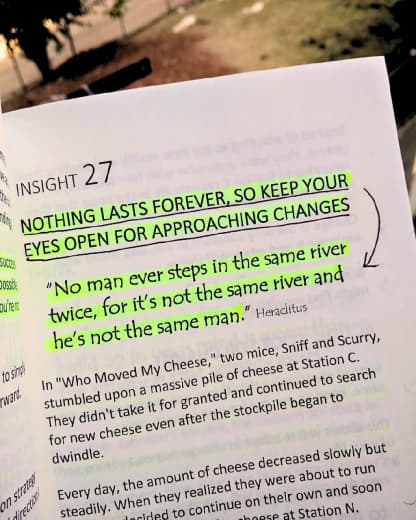 INSIGHT 27
NOTHING LASTS FOREVER, SO KEEP YOUR
EYES OPEN FOR APPROACHING CHANGES
"No man ever steps in the same river
twice, for it's not the same river and
he's not the same man." Heraclitus
In "Who Moved My Cheese," two mice, Sniff and Scurry,
stumbled upon a massive pile of cheese at Station C.
They didn't take it for granted and continued to search
for new cheese even after the stockpile began to
dwindle.
Every day, the amount of cheese decreased slowly but
steadily. When they realized they were about to run
decided to continue on their own and soon
cheese at Station N.
success
possible
you're
to simply
rward.
on strategy
directi